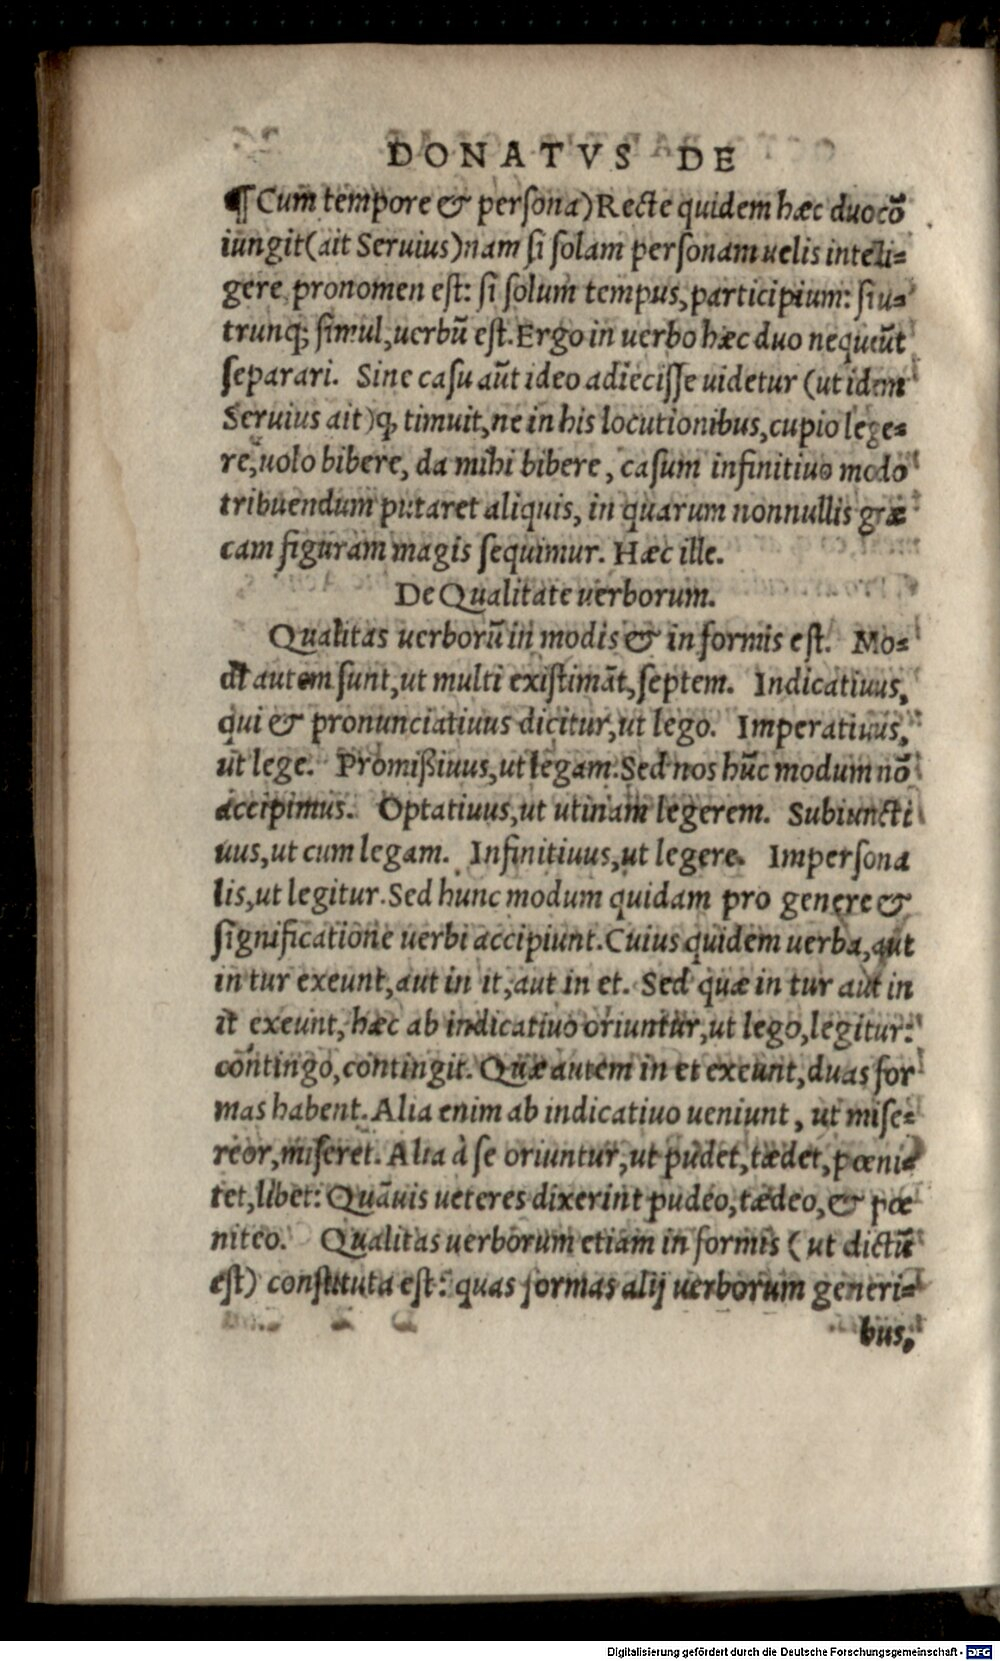 DONATVS DE
¶ Cum tempore & persona) Recte quidem hæc duo cõ
iungit (ait Seruius) nam si solam personam uelis inteli-
gere, pronomen est: si solum tempus, participium: si u-
trunq; simul, uerbũ est. Ergo in uerbo hæc duo nequeũt
separari. Sine casu aũt ideo adiecisse uidetur (ut idem
Seruius ait) q, timuit, ne in his locutionibus, cupio lege-
re, uolo bibere, da mihi bibere, casum infinitiuo modo
tribuendum putaret aliquis, in quarum nonnullis græ
cam figuram magis sequimur. Hæc ille.
De Qualitate uerborum.
Qualitas uerborũ in modis & in formis est. Mo-
di autem sunt, ut multi existimãt, septem. Indicatiuus,
qui & pronunciatiuus dicitur, ut lego. Imperatiuus,
ut lege. Promißiuus, ut legam. Sed nos hũc modum nõ
accipimus. Optatiuus, ut utinam legerem. Subiuncti
uus, ut cum legam. Infinitiuus, ut legere. Impersona
lis, ut legitur. Sed hunc modum quidam pro genere &
significatione uerbi accipiunt. Cuius quidem uerba, aut
in tur exeunt, aut in it, aut in et. Sed quæ in tur aut in
it exeunt, hæc ab indicatiuo oriuntur, ut lego, legitur:
contingo, contingit. Quæ autem in et exeunt, duas for
mas habent. Alia enim ab indicatiuo ueniunt, ut mise-
reor, miseret. Alia à se oriuntur, ut pudet, tædet, pœni-
tet, libet: Quãuis ueteres dixerint pudeo, tædeo, & pœ
niteo. Qualitas uerborum etiam in formis (ut dictũ
est) constituta est: quas formas alij uerborum generi-
bus,
Digitalisierung gefördert durch die Deutsche Forschungsgemeinschaft - DFG